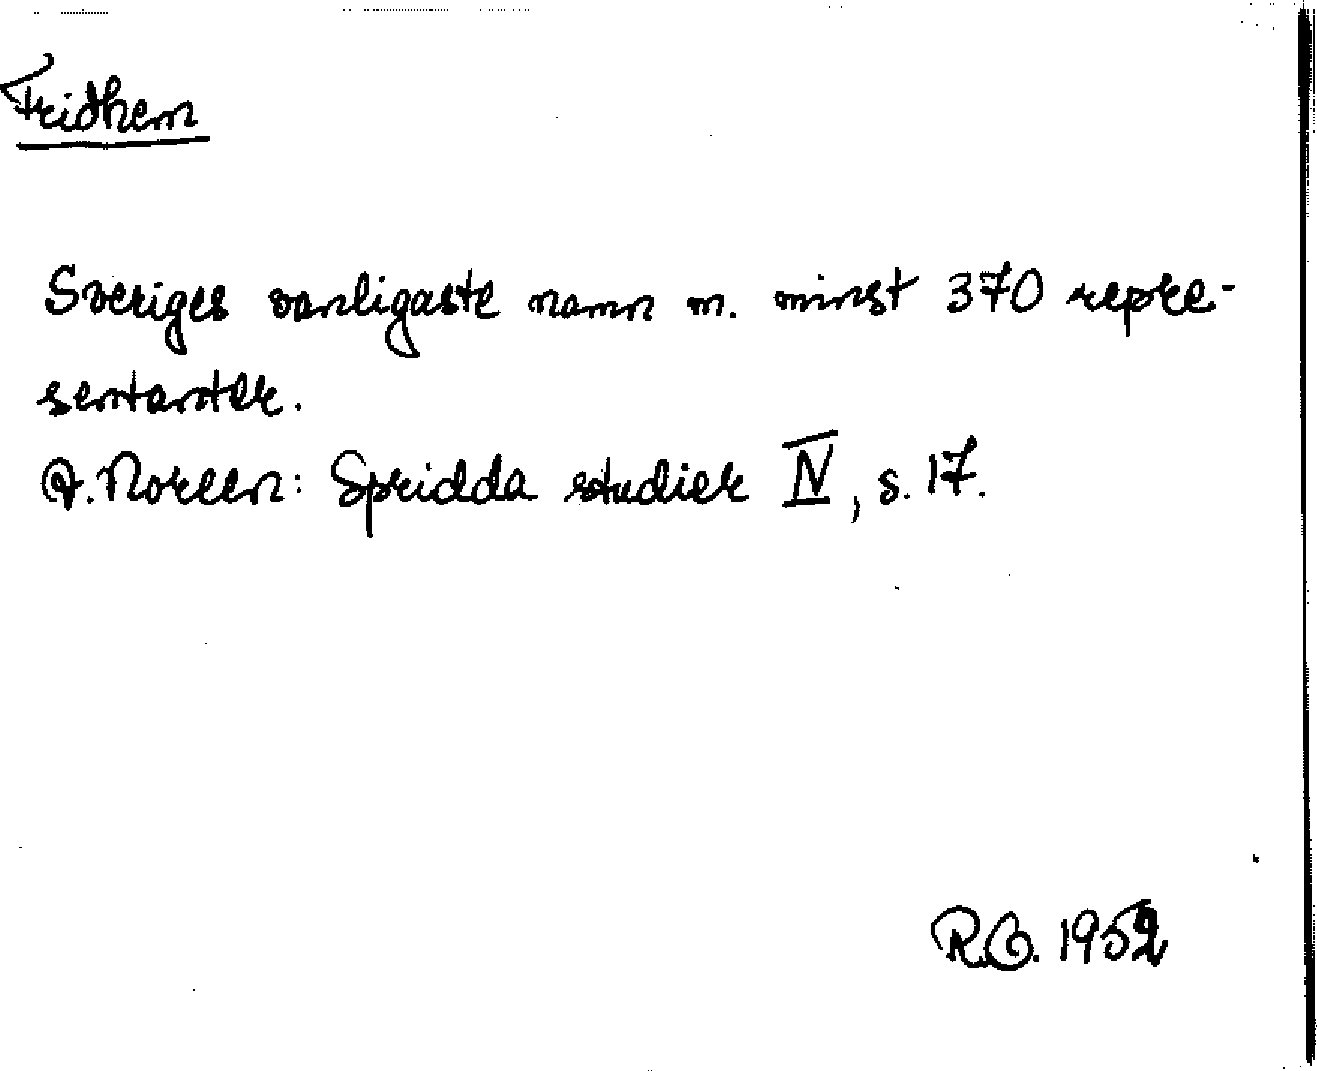 Fridhem
Sveriges vanligaste namn m. minst 370 repre-
sentanter.
A. Noreen: Spridda studier IV, s. 17.
R.O. 1952